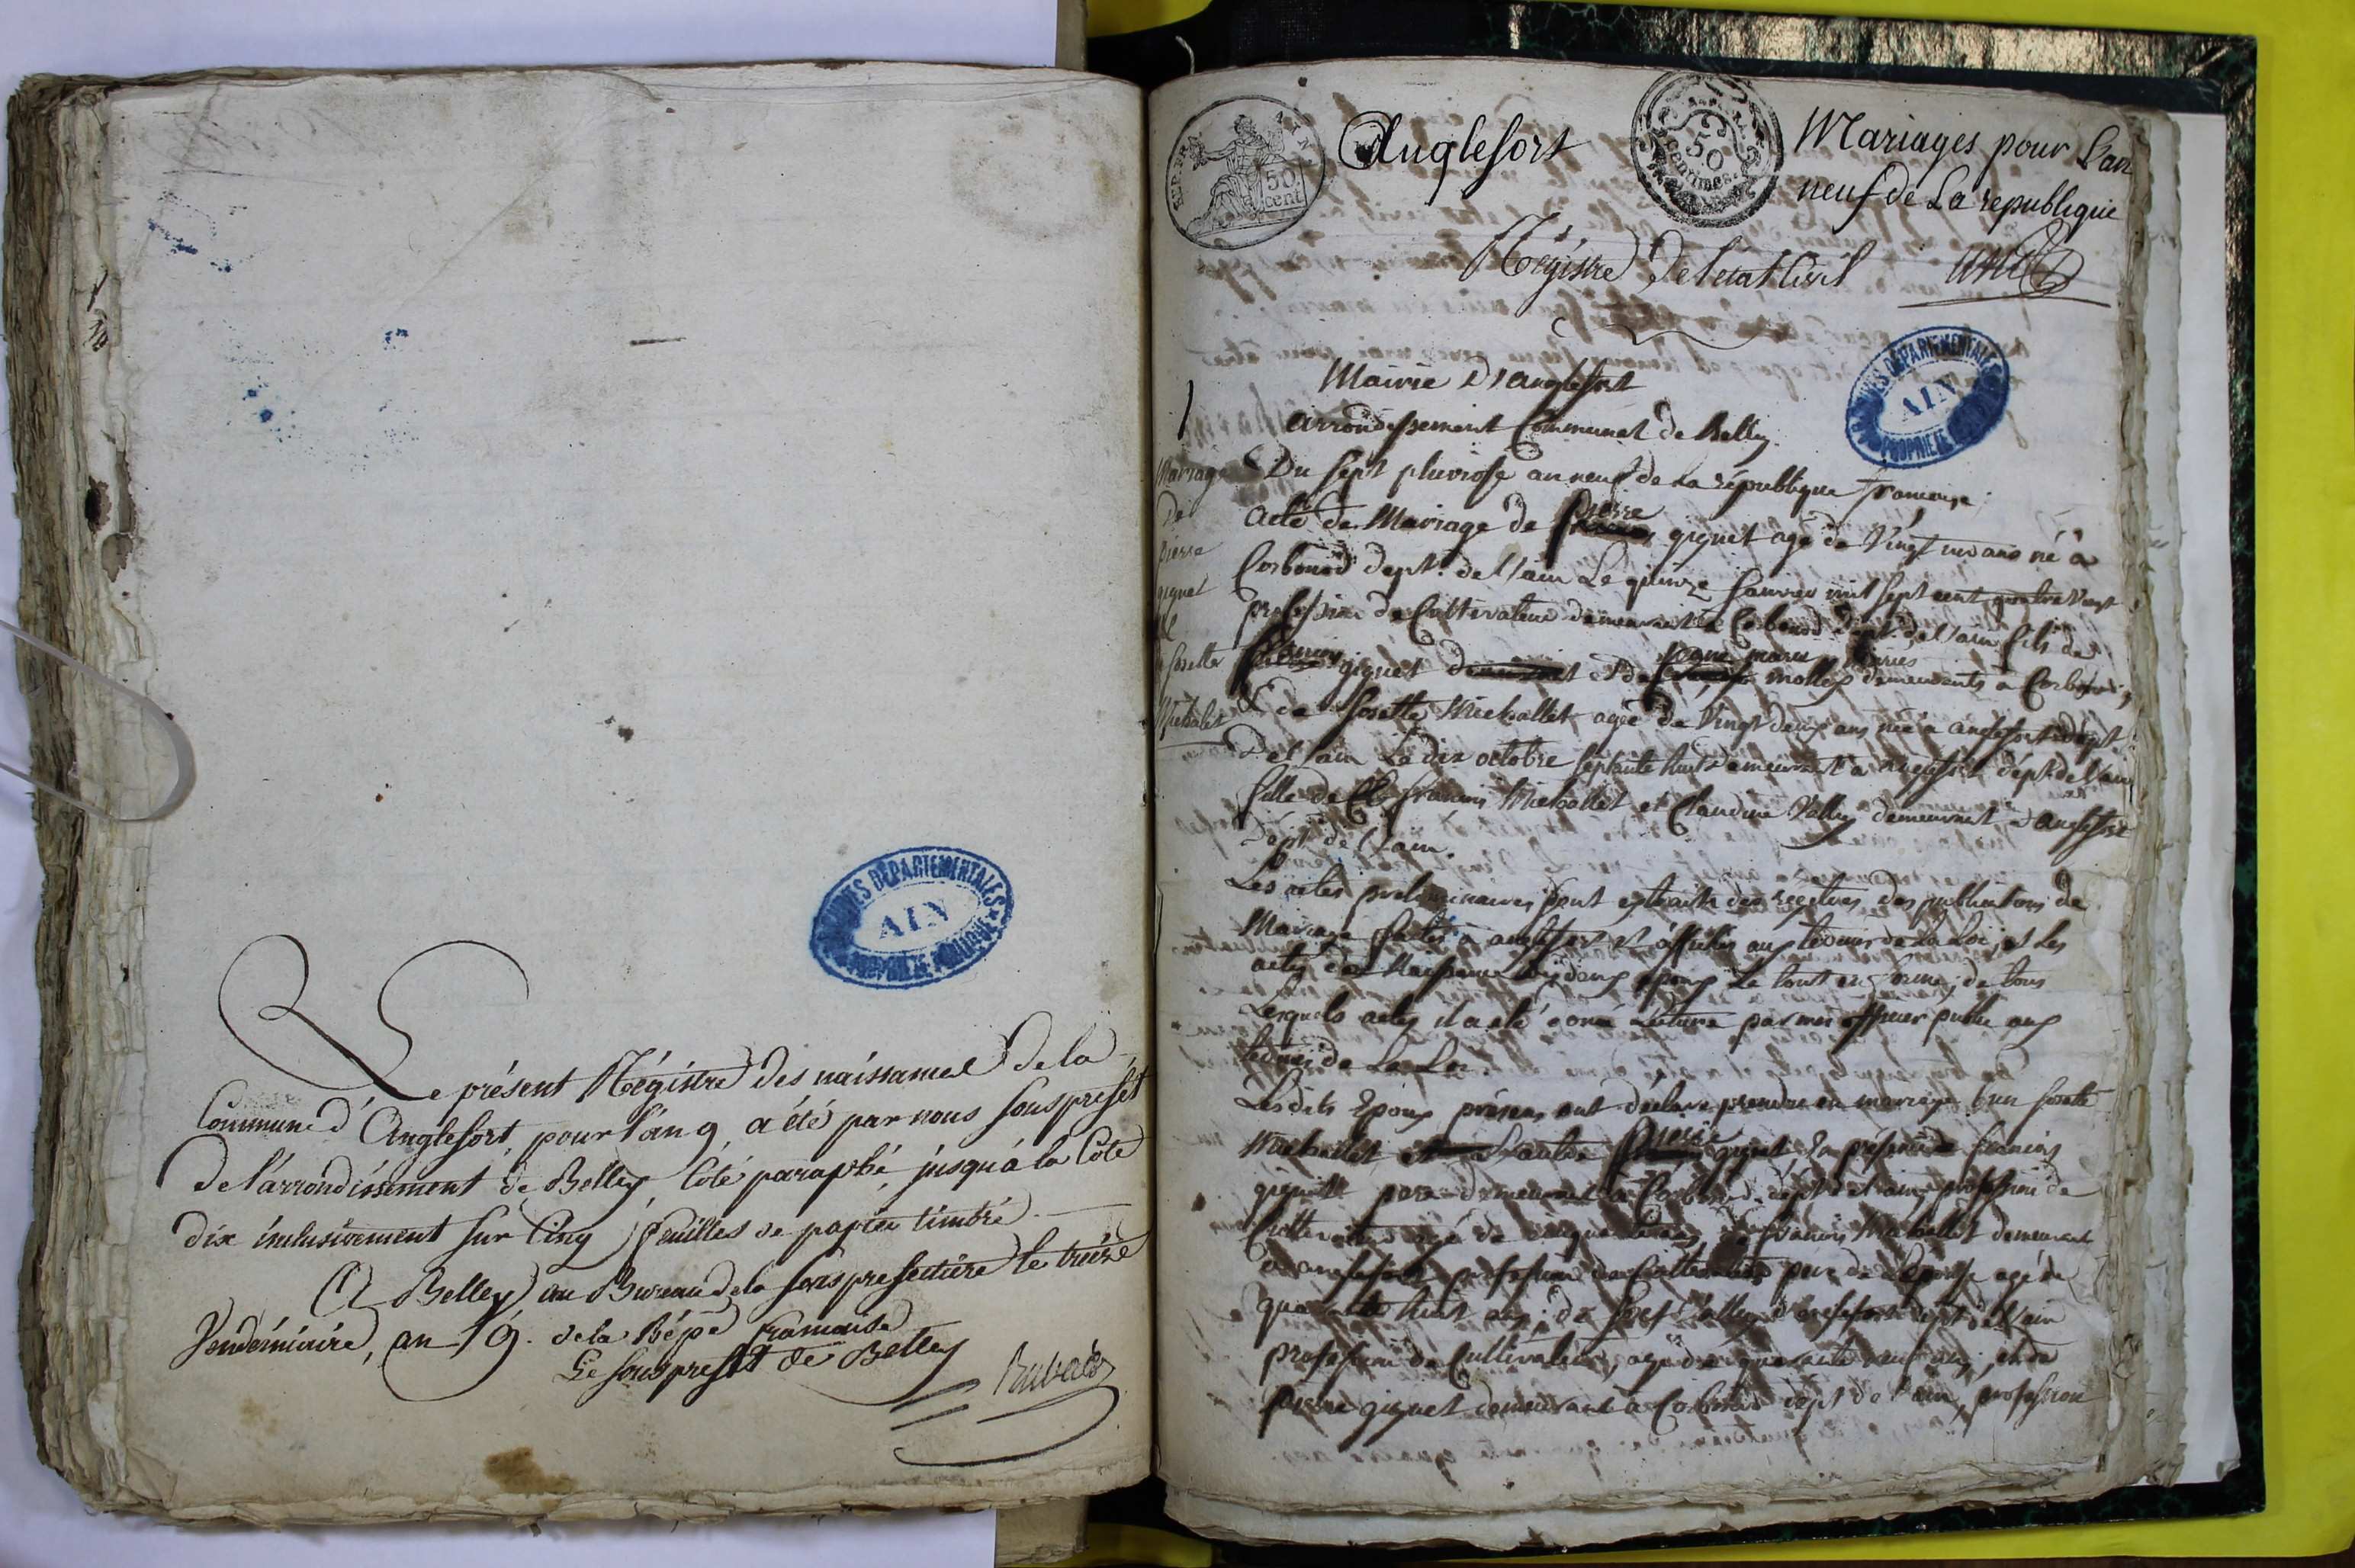 ARCHIVES DEPARTEMENTALES
AIN
PROPRIETE PUBLIQUE
Le présent Régistre des naissances de la
Commune d'Anglefort, pour l'an 9, a été par nous souspréfet
De l'arrondissement de Belley, Coté paraphé, jusqu'à la Cote
dix inclusivement sur Cinq feuilles de papier timbré.
A Belley au Bureau de la souspréfecture le treize
Vendémiaire, an 9. de la Rép.e francaise
Le souspréfet de Belley
REP. FRA
AIN
50
cent
Anglefort
50
centimes
Mariages pour L'an
neuf de La republique
Régistre de l'état Civil
ARCHIVES DEPARTEMENTALES
AIN
PROPRIETE
1
Mairie D'anglefort
arrondissement Communal de Belley.
Mariage
De
pierre
giguet
et
josette
Michalet
Du sept pluviose an neuf de La république francaise
acte de Mariage de pierre giguet agé de Vingt un ans né à
Corbonod dept. de l'ain Le quinze janvier mil sept cent quatre vingt
profession de Cultivateur demeurant à Corbonod dept. de l'ain fils de
francois giguet et de marie mollex demeurants à Corbonod,
& de Josette Michallet agée de Vingt deux ans née à anglefort dépt
de l'ain Le dix octobre septante huit demeurant à anglefort dépt de l'ain
fille de francois Michallet et Claudine Vallex demeurant à anglefort
Dépt de l'ain.
Les actes preliminaires sont extraits des registres des publications de
Mariage faites à anglefort et affichés aux termes de La Loi, et Les
actes de Naissance des deux epoux Le tout en forme, de tous
Lesquels actes il a été doné Lecture par moi officier public aux
termes de La Loi
Lesdits Epoux présens ont déclaré prendre en mariage l'un Josette
Michallet L'autre pierre giguet En présence de francois
giguet pere demeurant à Corbonod dept de l'ain profession de
Cultivateur agé de cinquante ans francois Michallet demeurant
à anglefort profession de Cultivateur pere de L'epouse agé de
quarante huit ans, de josef Vallex d'anglefort dept de l'ain
profession de Cultivateur, agé de quarante neuf ans, et de
pierre giguet demeurant à Corbonod dept de l'ain, profession